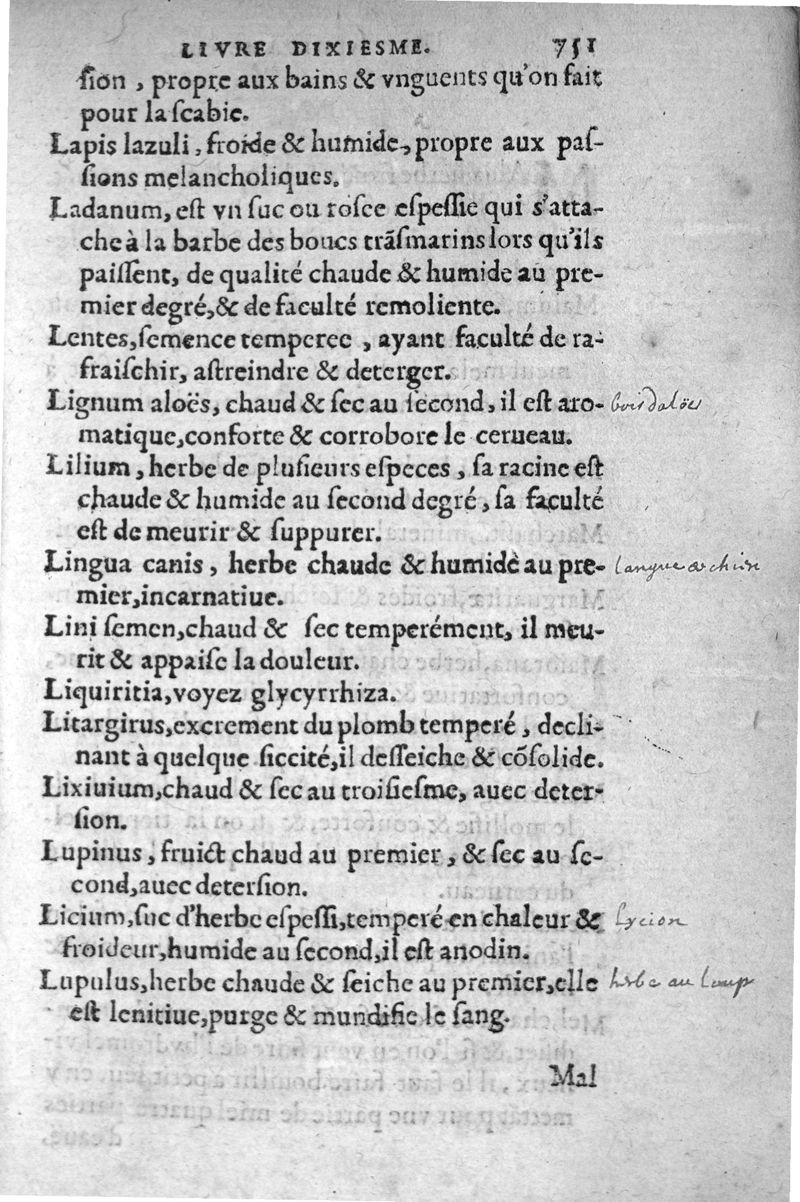 LIVRE DIXIESME. 751
ſion , propre aux bains & vnguents qu'on fait
pour la ſcabie.
Lapis lazuli, froide & humide, propre aux paſ-
ſions melancholiques.
Ladanum, eſt vn ſuc ou roſee eſpeſſie qui s'atta-
che à la barbe des boucs trãſmarins lors qu'ils
paiſſent, de qualité chaude & humide au pre-
mier degré, & de faculté remoliente.
Lentes, ſemence temperee , ayant faculté de ra-
fraiſchir, aſtreindre & deterger.
Lignum aloës, chaud & ſec au ſecond, il eſt aro- bois daloës
matique, conforte & corrobore le cerueau.
Lilium, herbe de pluſieurs eſpeces, ſa racine eſt
chaude & humide au ſecond degré, ſa faculté
eſt de meurir & ſuppurer.
Lingua canis, herbe chaude & humide au pre- langue de chien
mier, incarnatiue.
Lini ſemen, chaud & ſec temperément, il meu-
rit & appaiſe la douleur.
Liquiritia, voyez glycyrrhiza.
Litargirus, excrement du plomb temperé, decli-
nant à quelque ſiccité, il deſſeiche & cõſolide.
Lixiuium, chaud & ſec au troiſieſme, auec deter-
ſion.
Lupinus, fruict chaud au premier, & ſec au ſe-
cond, auec deterſion.
Licium, ſuc d'herbe eſpeſſi, temperé en chaleur & Lycion
froideur, humide au ſecond, il eſt anodin.
Lupulus, herbe chaude & ſeiche au premier, elle herbe au loup
eſt lenitiue, purge & mundifie le ſang.
Mal